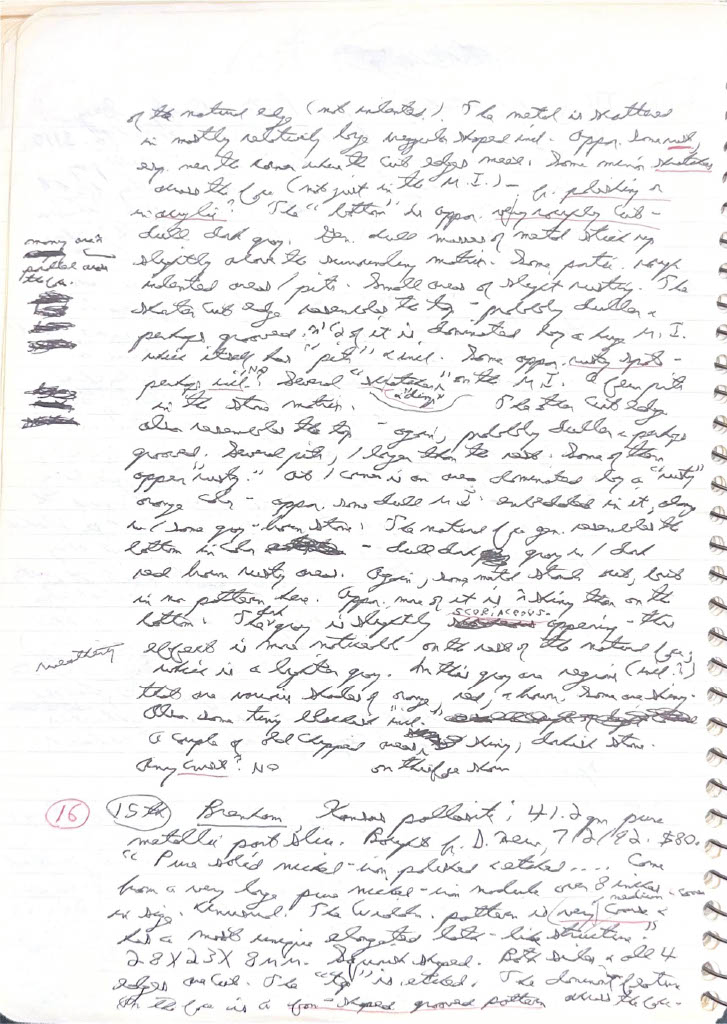 of the natural edge (not indented). The metal is scattered
in mostly relatively large irregular shaped incl. Appar. some rust,
esp. near the corner where the cut edges meet. Some minor scratches
across the face (not just in the M.I.) - fr. polishing or
in acrylic? The "bottom" is appar. very roughly cut -
dull dark gray. Gen. dull masses of metal stick up
slightly above the surrounding matrix. Some parts rough
indented areas / pits. Small areas of slight rusting. The
shorter cut edge resembles the top - probably duller &
perhaps grooved. 1/2 of it is dominated by a huge M.I.
which itself has "pits" & incl. Some appar. rusty spots -
perhaps incl.? NO Several "scratches" on the M.I. A few pits
in the stone matrix. The other cut edge
also resembles the top - again, probably duller & perhaps
grooved. Several pits, 1 larger than the rest. Some of them
appear "rusty." At 1 corner is an area dominated by a "rusty"
orange color - appar. some dull M.I. embedded in it, along
w/ some gray-brown stone. The natural face gen. resembles the
bottom in color - dull dark gray w/ 1 dark
red brown rusty area. Again, some metal stands out, but
in no pattern here. Appar. more of it is shiny than on the
bottom. The dark gray is slightly SCORIACEOUS appearing - this
effect is more noticeable on the rest of the natural face,
which is a lighter gray. In this gray are regions (incl.?)
that are various shades of orange, red, & brown. Some are shiny.
Also some tiny blackish "incl."
A couple of old chipped areas shiny, darkish stone.
Any crust? NO on this face shown
many areas
parallel across
the face.
weathering
16 15th Brenham, Kansas pallasite; 41.2 gm pure
metallic part slice. Bought fr. D. New, 7/2/92. $80.
"Pure solid nickel-iron, polished & etched.... Came
from a very large pure nickel-iron nodule over 8 inches
in size. Unusual. The Widm. pattern is (very) coarse &
medium - coarse
has a most unique elongated lath-like structure"
28 X 23 X 8 mm. Squarish shaped. Both sides & all 4
edges are cut. The "top" is etched. The dominant feature
on the face is a fan-shaped grooved pattern across the face -